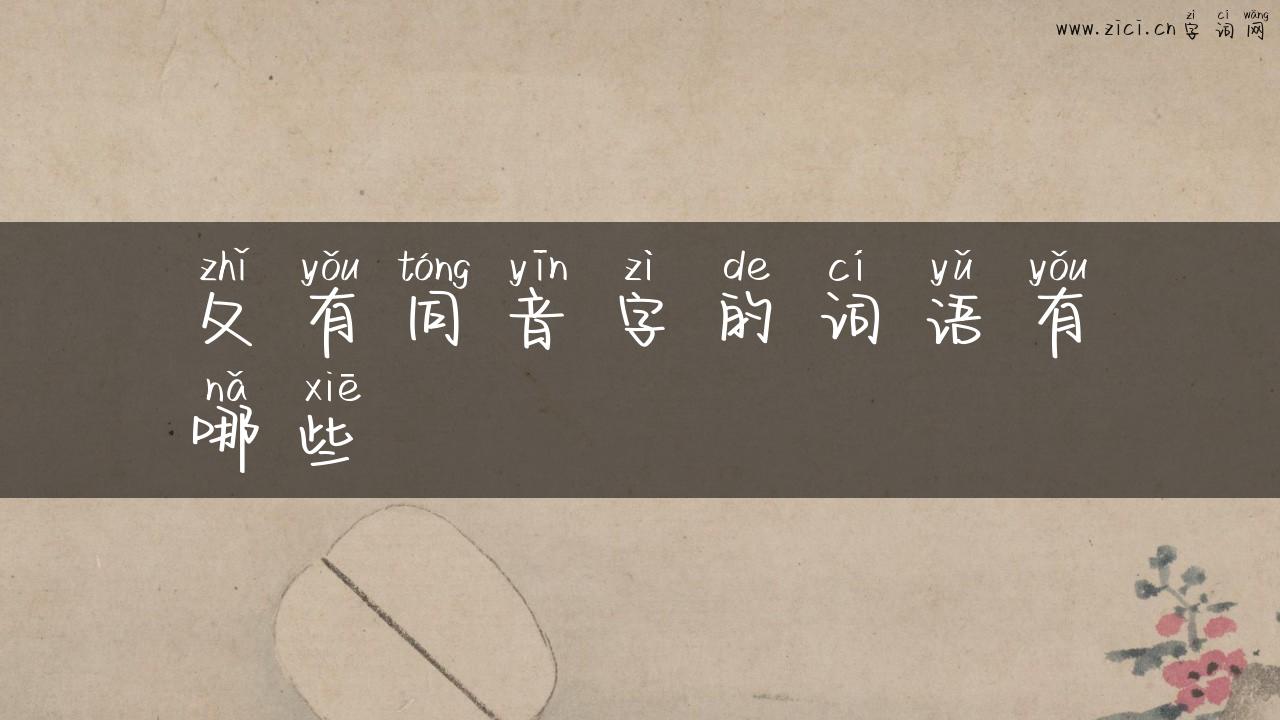 zì cí wǎng
www.zici.cn字词网
zhǐ yǒu tóng yīn zì de cí yǔ yǒu
夂有同音字的词语有
nǎ xiē
哪些